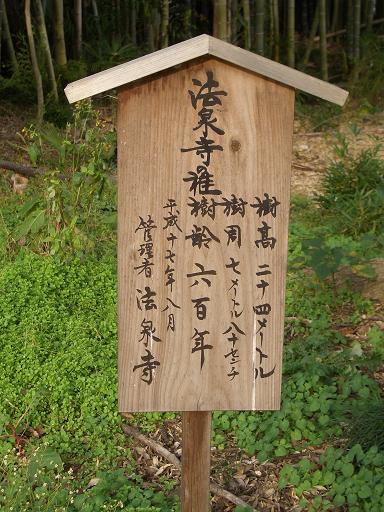 法泉寺の椎
樹高 二十四メートル
樹周 七メートル八十センチ
樹齢 六百年
平成十七年八月
管理者 法泉寺